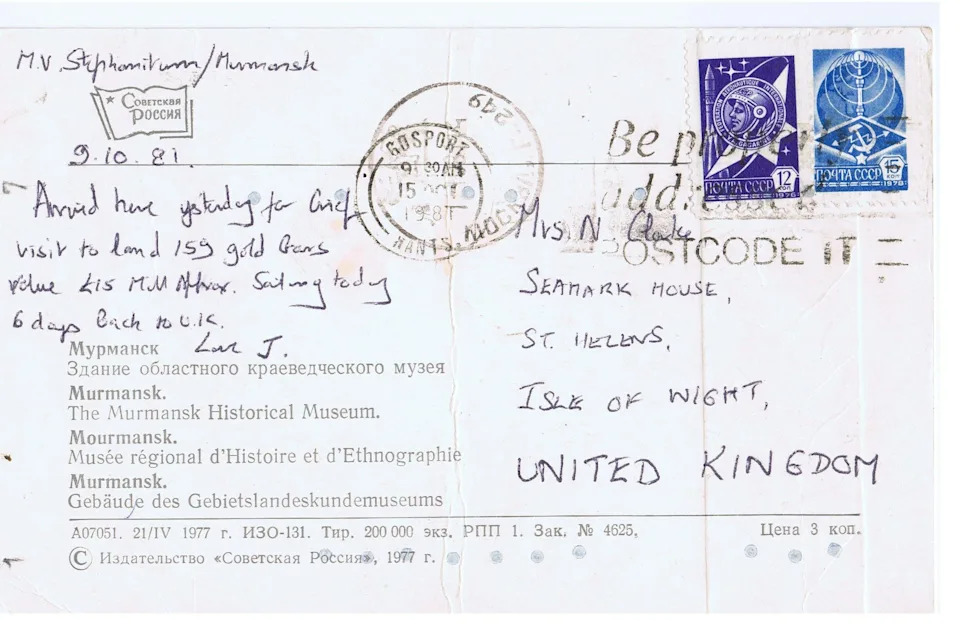 M.V. Stephaniturm/Murmansk
Советская
Россия
9.10.81.
Arrived here yesterday for brief
visit to land 159 gold bars
value £45 Mill Approx. Sailing today
6 days back to U.K.
Love J.
Мурманск
Здание областного краеведческого музея
Murmansk.
The Murmansk Historical Museum.
Mourmansk.
Musée régional d'Histoire et d'Ethnographie
Murmansk.
Gebäude des Gebietslandeskundemuseums
А07051. 21/IV 1977 г. ИЗО-131. Тир. 200 000 экз. РПП 1. Зак. № 4625.
Цена 3 коп.
© Издательство «Советская Россия», 1977 г.
249
GOSPORT
9 30AM
15 OCT
1981
HANTS.
Be properly
addressed
POSTCODE IT
12 коп
ПОЧТА СССР
1976
15 коп
ПОЧТА СССР
1978
Mrs N Clarke
SEAMARK HOUSE,
ST. HELENS,
ISLE OF WIGHT,
UNITED KINGDOM